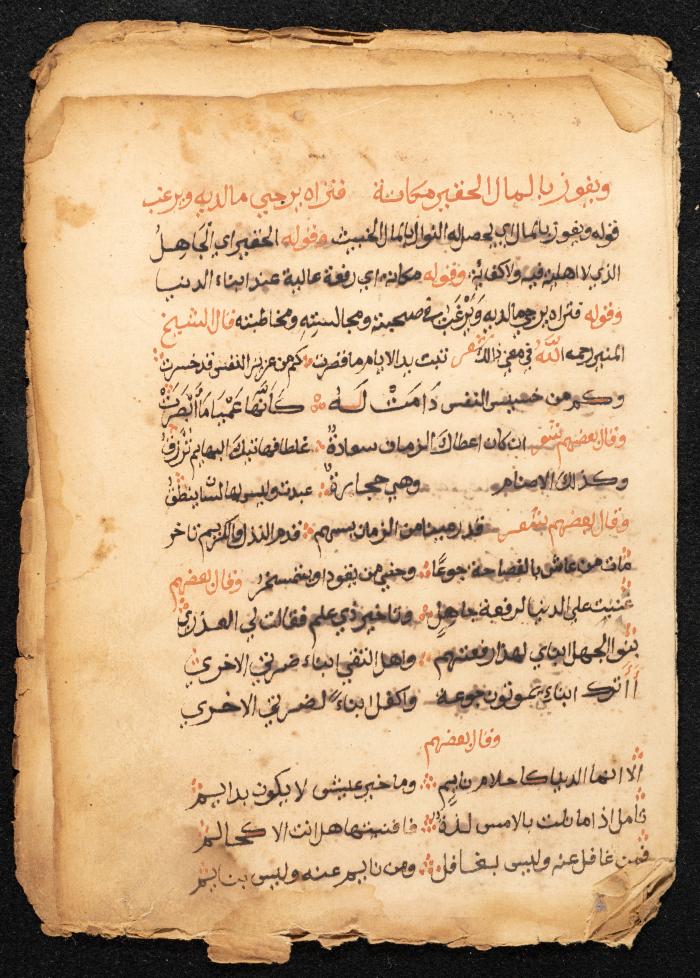 ويفوز بالمال الحقير مكانة فتراه يرجي ما لديه ويرغب
قوله ويفوز بالمال اي يحصل له النوال بالمال الخبيث وقوله الحقير اي الجاهل
الذي لا اهلية فيه ولا كفاية وقوله مكانه اي رفعة عالية عند ابناء الدنيا
وقوله فتراه يرجي ما لديه ويرغب في صحبته ومجالسته ومخاطبته قال الشيخ
المنير رحمه الله في معني ذالك شعر تبت يد الايام ما قصرت كم من عزيز النفس قد خسرت
وكم من خسيس النفس دامت له كأنها عميا ما أبصرت
وقال بعضهم شعر ان كان اعطاك الزمان سعادة غلطا فهاتيك البهايم ترزق
وكذلك الاصنام وهي حجارة عبدت وليس لها لسان ينطق
وقال بعضهم شعر قد رمينا من الزمان بسهم قدم النذل والكريم تاخر
مات من عاش بالفصاحة جوعا وحظي من يقود او يتمسخر وقال بعضهم
عتبت علي الدنيا لرفعة جاهل وتاخير ذي علم فقالت لي العذري
بنوا الجهل ابناي لهذا رفعتهم واهل التقي ابناء ضرتي الاخري
أأترك ابناي يموتون جوعة واكفل ابناء لضرتي الاخري
وقال بعضهم
ألا انما الدنيا كاحلام نايم وما خير عيش لا يكون بدايم
تامل اذا ما نلت بالامس لذة فافنيتها هل انت الا كحالم
فمن غافل عنه وليس بغافل ومن نايم عنه وليس بنايم